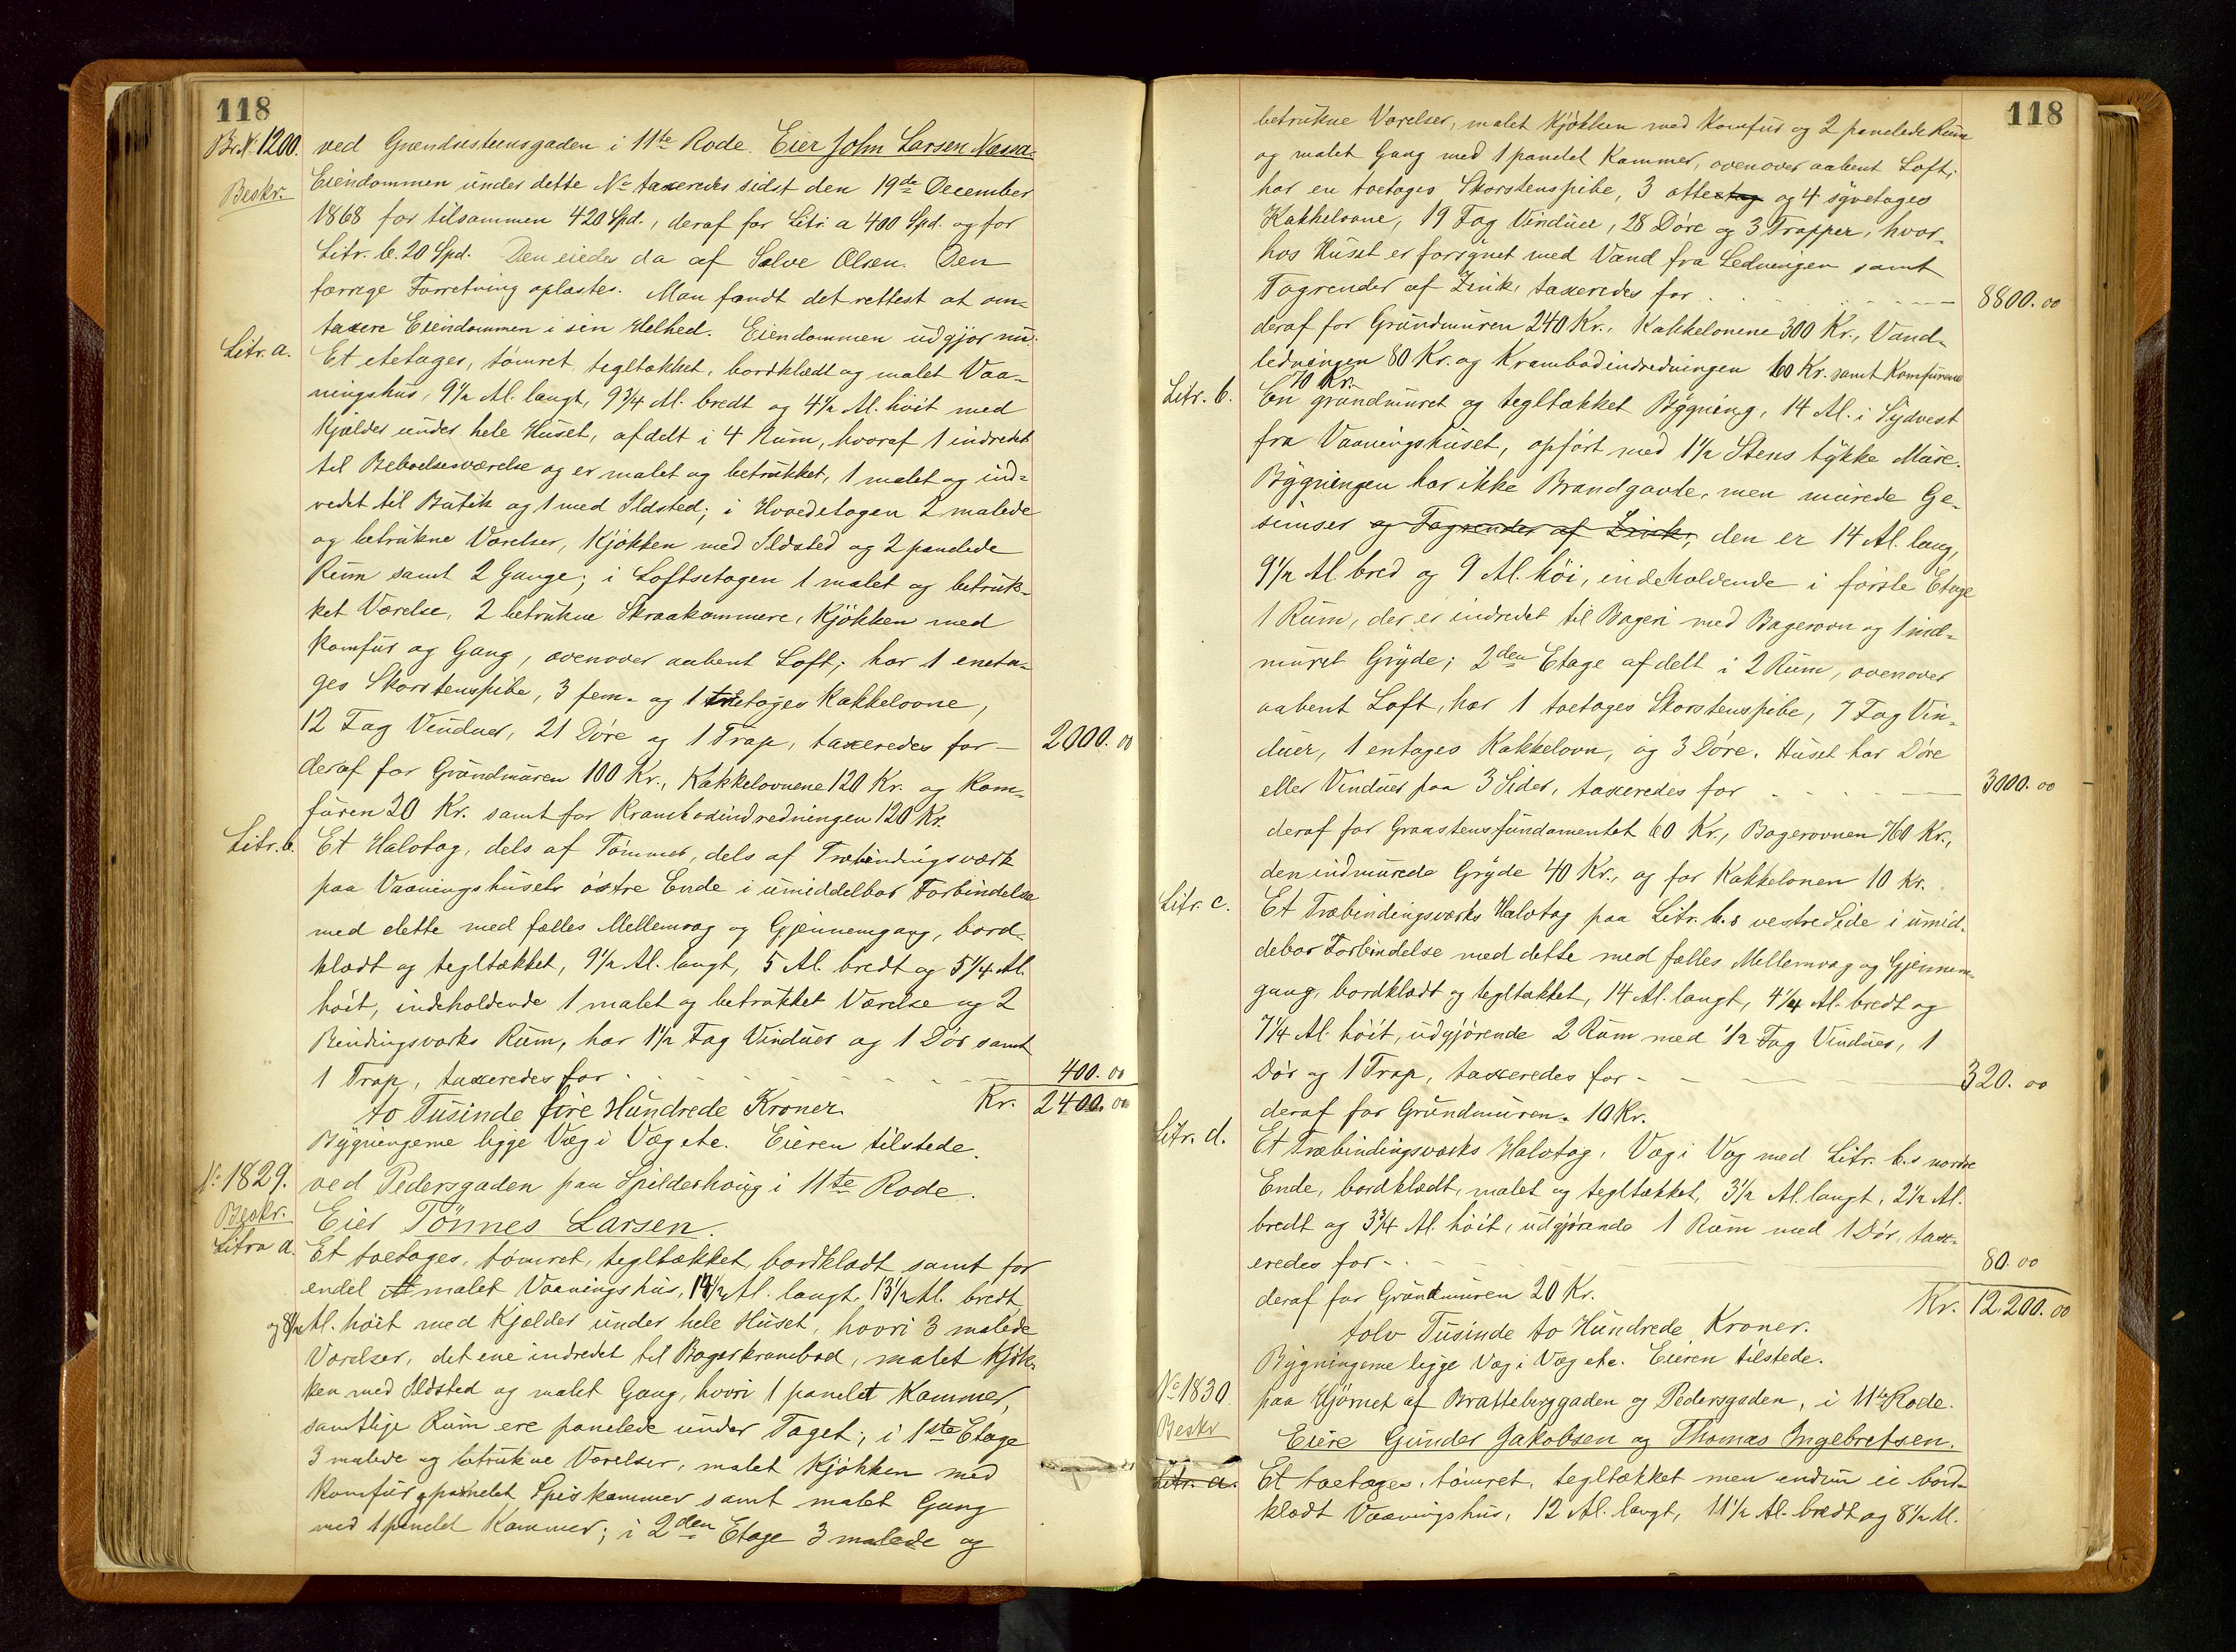 118
Br. № 1200. ved Grændsesteensgaden i 11te Rode. Eier John Larsen Næssa-
Beskr. Eiendommen under dette No taxeredes sidst den 19de December
1868 for tilsammen 420 Spd., deraf for Litr. a 400 Spd. og for
Litr. b. 20 Spd. Den eiedes da af Salve Olsen. Den
forrige Forretning oplæstes. Man fandt det rettest at om-
taxere Eiendommen i sin Helhed. Eiendommen udgjør nu:
Litr. a. Et etetages, tømret, tegltækket, bordklædt og malet Vaa-
ningshus, 9½ Al. langt, 9¾ Al. bredt og 4½ Al. høit med
Kjælder under hele Huset, afdelt i 4 Rum, hvoraf 1 indredet
til Beboelsesværelse og er malet og betrukket, 1 malet og ind-
redet til Butik og 1 med Ildsted; i Hovedetagen 2 malede
og betrukne Værelser, Kjøkken med Ildsted og 2 panelede
Rum samt 2 Gange; i Loftsetagen 1 malet og betruk-
ket Værelse, 2 betrukne Skraakammere, Kjøkken med
Komfur og Gang, ovenover aabent Loft; har 1 eneta-
ges Skorstenspibe, 3 fem- og 1 treetages Kakkelovne,
12 Fag Vinduer, 21 Døre og 1 Trap, taxeredes for — 2000.00
deraf for Grundmuren 100 Kr., Kakkelovnene 120 Kr. og Kom-
furen 20 Kr. samt for Krambodindredningen 120 Kr.
Litr. b. Et Halvtag, dels af Tømmer, dels af Træbindingsværk
paa Vaaningshusets østre Ende i umiddelbar Forbindelse
med dette med fælles Mellemvæg og Gjennemgang, bord-
klædt og tegltækket, 9½ Al. langt, 5 Al. bredt og 5¼ Al.
høit, indeholdende 1 malet og betrukket Værelse og 2
Bindingsværks Rum, har 1½ Fag Vinduer og 1 Dør samt
1 Trap, taxeredes for - - - 400.00
to Tusinde fire Hundrede Kroner. Kr. 2400.00
Bygningerne ligge Væg i Væg etc. Eieren tilstede.
No 1829. ved Pedersgaden paa Spilderhaug i 11te Rode.
Beskr. Eier Tönnes Larsen.
Litra a. Et toetages, tømret, tegltækket, bordklædt samt for
endel malet Vaaningshus, 14½ Al. langt, 13½ Al. bredt
og 8½ Al. høit med Kjælder under hele Huset, hvori 3 malede
Værelser, det ene indredet til Bagerkrambod, malet Kjøk-
ken med Ildsted og malet Gang, hvori 1 panelet Kammer,
samtlige Rum ere panelede under Taget; i 1ste Etage
3 malede og betrukne Værelser, malet Kjøkken med
Komfur, panelet Spiskammer samt malet Gang
med 1 panelet Kammer; i 2den Etage 3 malede og
118
betrukne Værelser, malet Kjøkken med Komfur og 2 panelede Rum
og malet Gang med 1 panelet Kammer, ovenover aabent Loft;
har en toetages Skorstenspibe, 3 otteetag og 4 syvetages
Kakkelovne, 19 Fag Vinduer, 28 Døre og 3 Trapper, hvor-
hos Huset er forsynet med Vand fra Ledningen samt
Tagrender af Zink, taxeredes for - - - 8800.00
deraf for Grundmuren 240 Kr., Kakkelovnene 300 Kr., Vand-
ledningen 80 Kr. og Krambodindredningen 160 Kr. samt Komfurene
70 Kr.
Litr. b. En grundmuret og tegltækket Bygning, 14 Al. i Sydvest
fra Vaaningshuset, opført med 1½ Stens tykke Mure.
Bygningen har ikke Brandgavle, men murede Ge-
simser og Tagrender af Zink, den er 14 Al. lang,
9½ Al. bred og 9 Al. høi, indeholdende i første Etage
1 Rum, der er indredet til Bageri med Bagerovn og 1 ind-
muret Gryde; 2den Etage afdelt i 2 Rum, ovenover
aabent Loft, har 1 toetages Skorstenspibe, 7 Fag Vin-
duer, 1 entages Kakkelovn, og 3 Døre. Huset har Døre
eller Vinduer paa 3 Sider, taxeredes for - - - 3000.00
deraf for Graastensfundamentet 60 Kr., Bagerovnen 760 Kr.,
den indmurede Gryde 40 Kr., og for Kakkelovnen 10 Kr.
Litr. c. Et Træbindingsværks Halvtag paa Litr. b.s vestre Side i umid-
delbar Forbindelse med dette med fælles Mellemvæg og Gjennem-
gang, bordklædt og tegltækket, 14 Al. langt, 4¼ Al. bredt og
7¼ Al. høit, udgjørende 2 Rum med ½ Fag Vinduer, 1
Dør og 1 Trap, taxeredes for - - - 320.00
deraf for Grundmuren 10 Kr.
Litr. d. Et Træbindingsværks Halvtag, Væg i Væg med Litr. b.s nordre
Ende, bordklædt, malet og tegltækket, 3½ Al. langt, 2½ Al.
bredt og 3¾ Al. høit, udgjørende 1 Rum med 1 Dør, tax-
eredes for - - - 80.00
deraf for Grundmuren 20 Kr. Kr. 12,200.00
tolv Tusinde to Hundrede Kroner.
Bygningerne ligge Væg i Væg etc. Eieren tilstede.
No 1830. paa Hjørnet af Bratteberggaden og Pedersgaden, i 11te Rode.
Beskr Eiere Gunder Jakobsen og Thomas Ingebretsen.
Litr. a. Et toetages, tømret, tegltækket men endnu ei bord-
klædt Vaaningshus, 12 Al. langt, 11½ Al. bredt og 8½ Al.